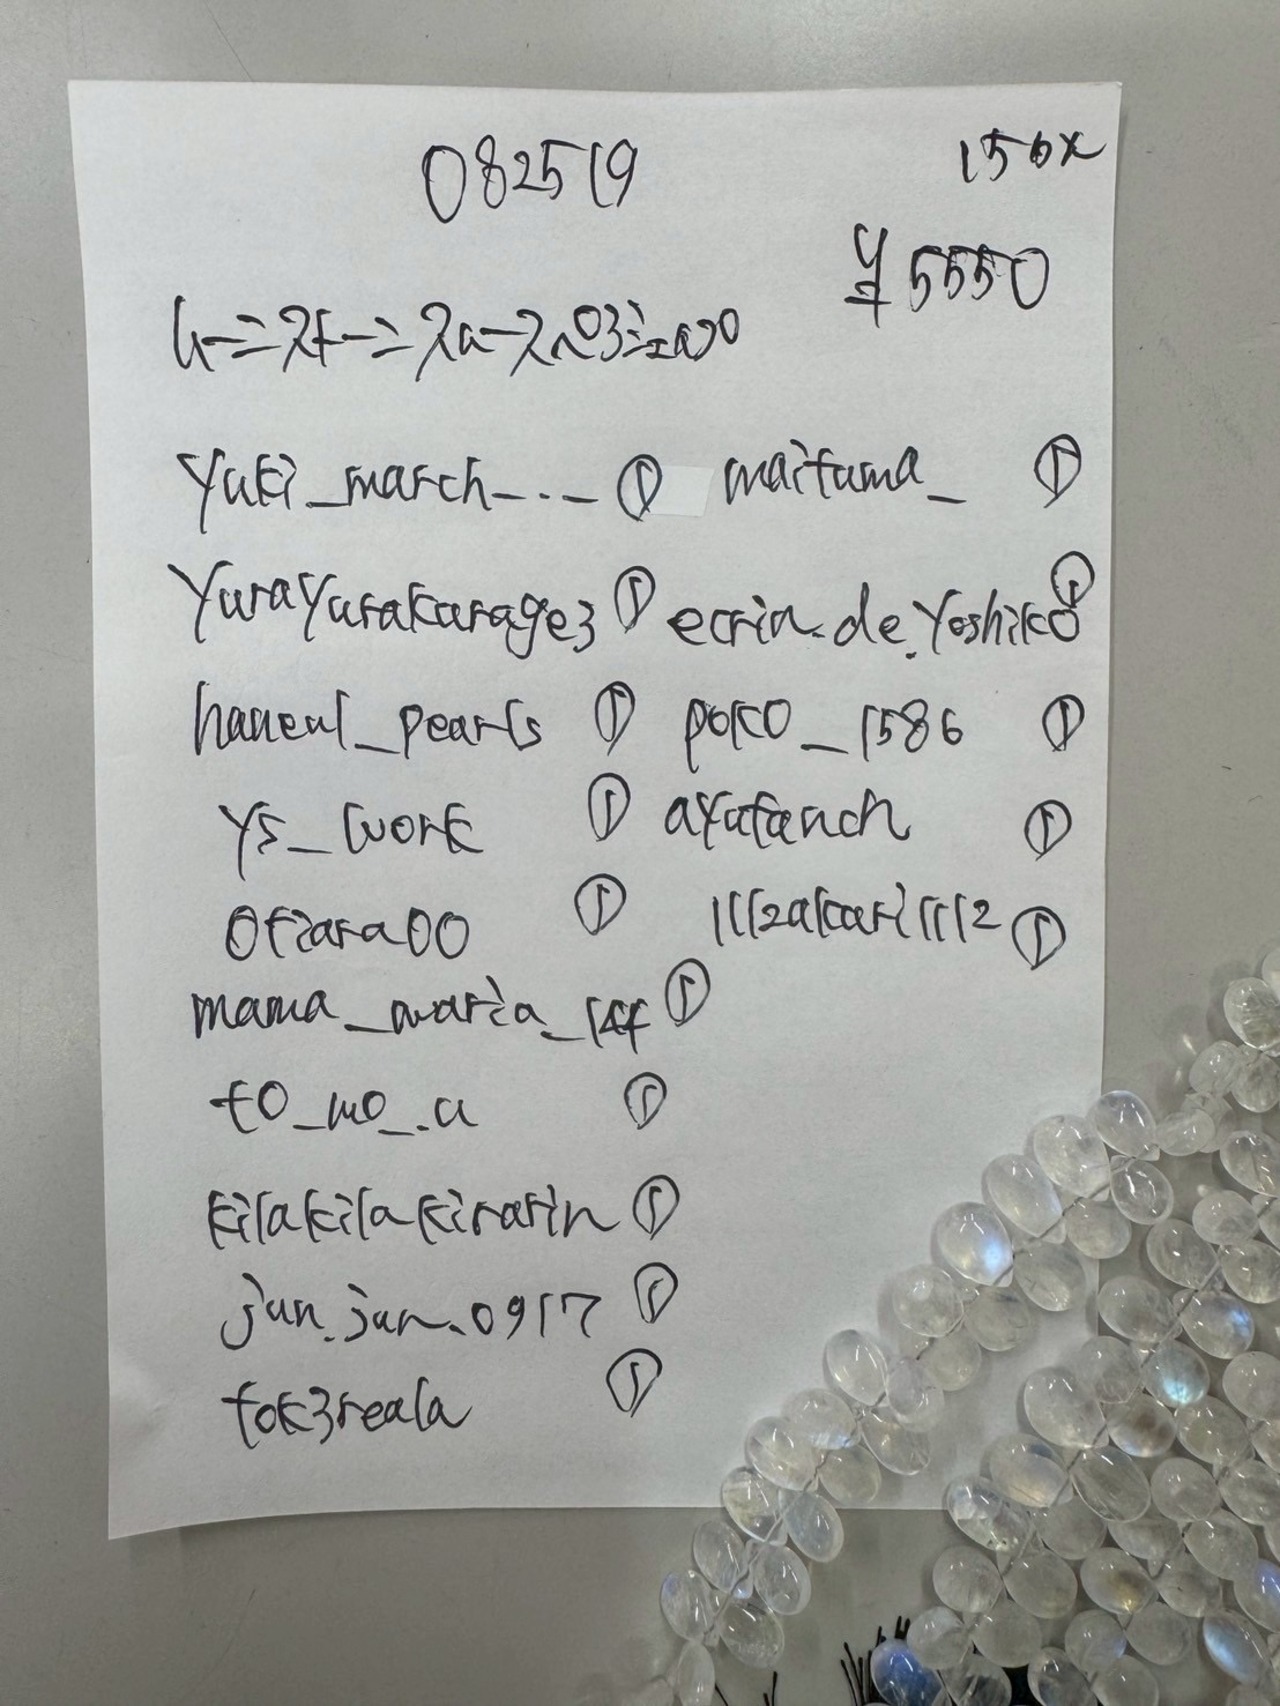 082519
156x
¥5550
yuki_march_..._ ① maituma_ ①
yurayurakurage3 ① ecrin.de.yoshiko ①
haneul_pearls ① poko_1586 ①
ys_work ① ayutanch ①
otiara00 ① 1112akari1112 ①
mama_maria_144 ①
to_mo_.a ①
kilakilakirarin ①
jun.jun.0917 ①
tok3reala ①